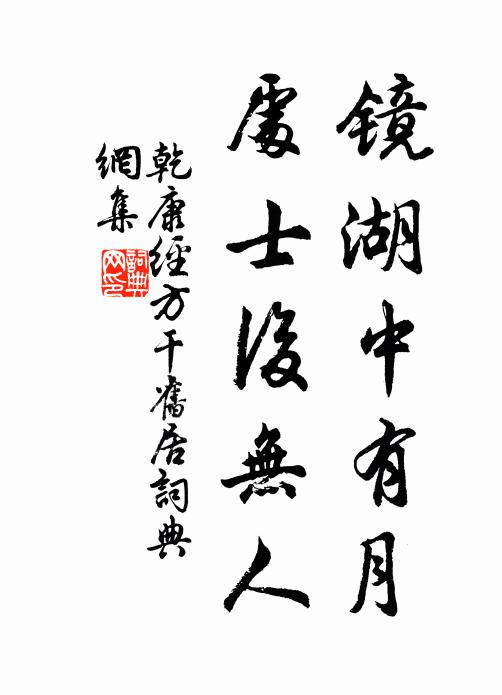 鏡湖中有月
處士後無人
乾康經方干舊居詞典
網集
詞典
网印